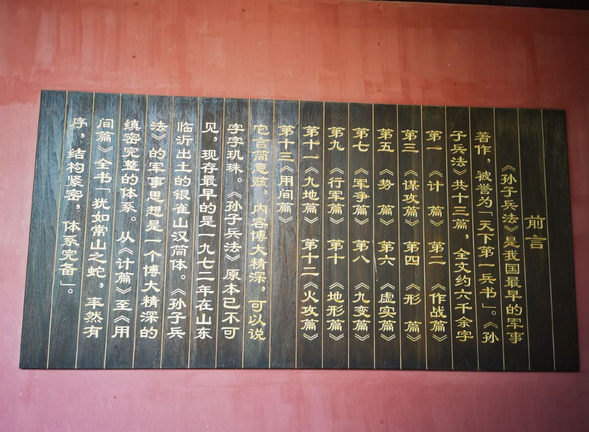 前言
《孙子兵法》是我国最早的军事
著作，被誉为「天下第一兵书」。《孙
子兵法》共十三篇，全文约六千余字
第一《计 篇》第二《作战篇》
第三《谋攻篇》第四《形 篇》
第五《势 篇》第六《虚实篇》
第七《军争篇》第八《九变篇》
第九《行军篇》第十《地形篇》
第十一《九地篇》第十二《火攻篇》
第十三《用间篇》
它言简意赅，内容博大精深，可以说
字字玑珠。《孙子兵法》原本已不可
见，现存最早的是一九七二年在山东
临沂出土的银雀山汉简体。《孙子兵
法》的军事思想是一个博大精深的
缜密完整的体系。从《计篇》至《用
间篇》全书「犹如常山之蛇，率然有
序，结构紧密，体系完备」。